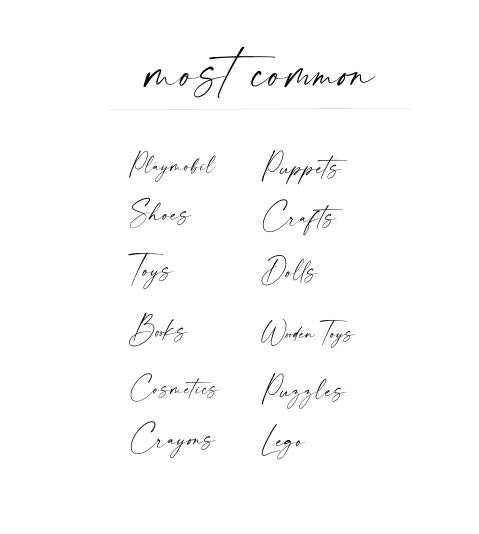 most common
Playmobil
Shoes
Toys
Books
Cosmetics
Crayons
Puppets
Crafts
Dolls
Wooden Toys
Puzzles
Lego